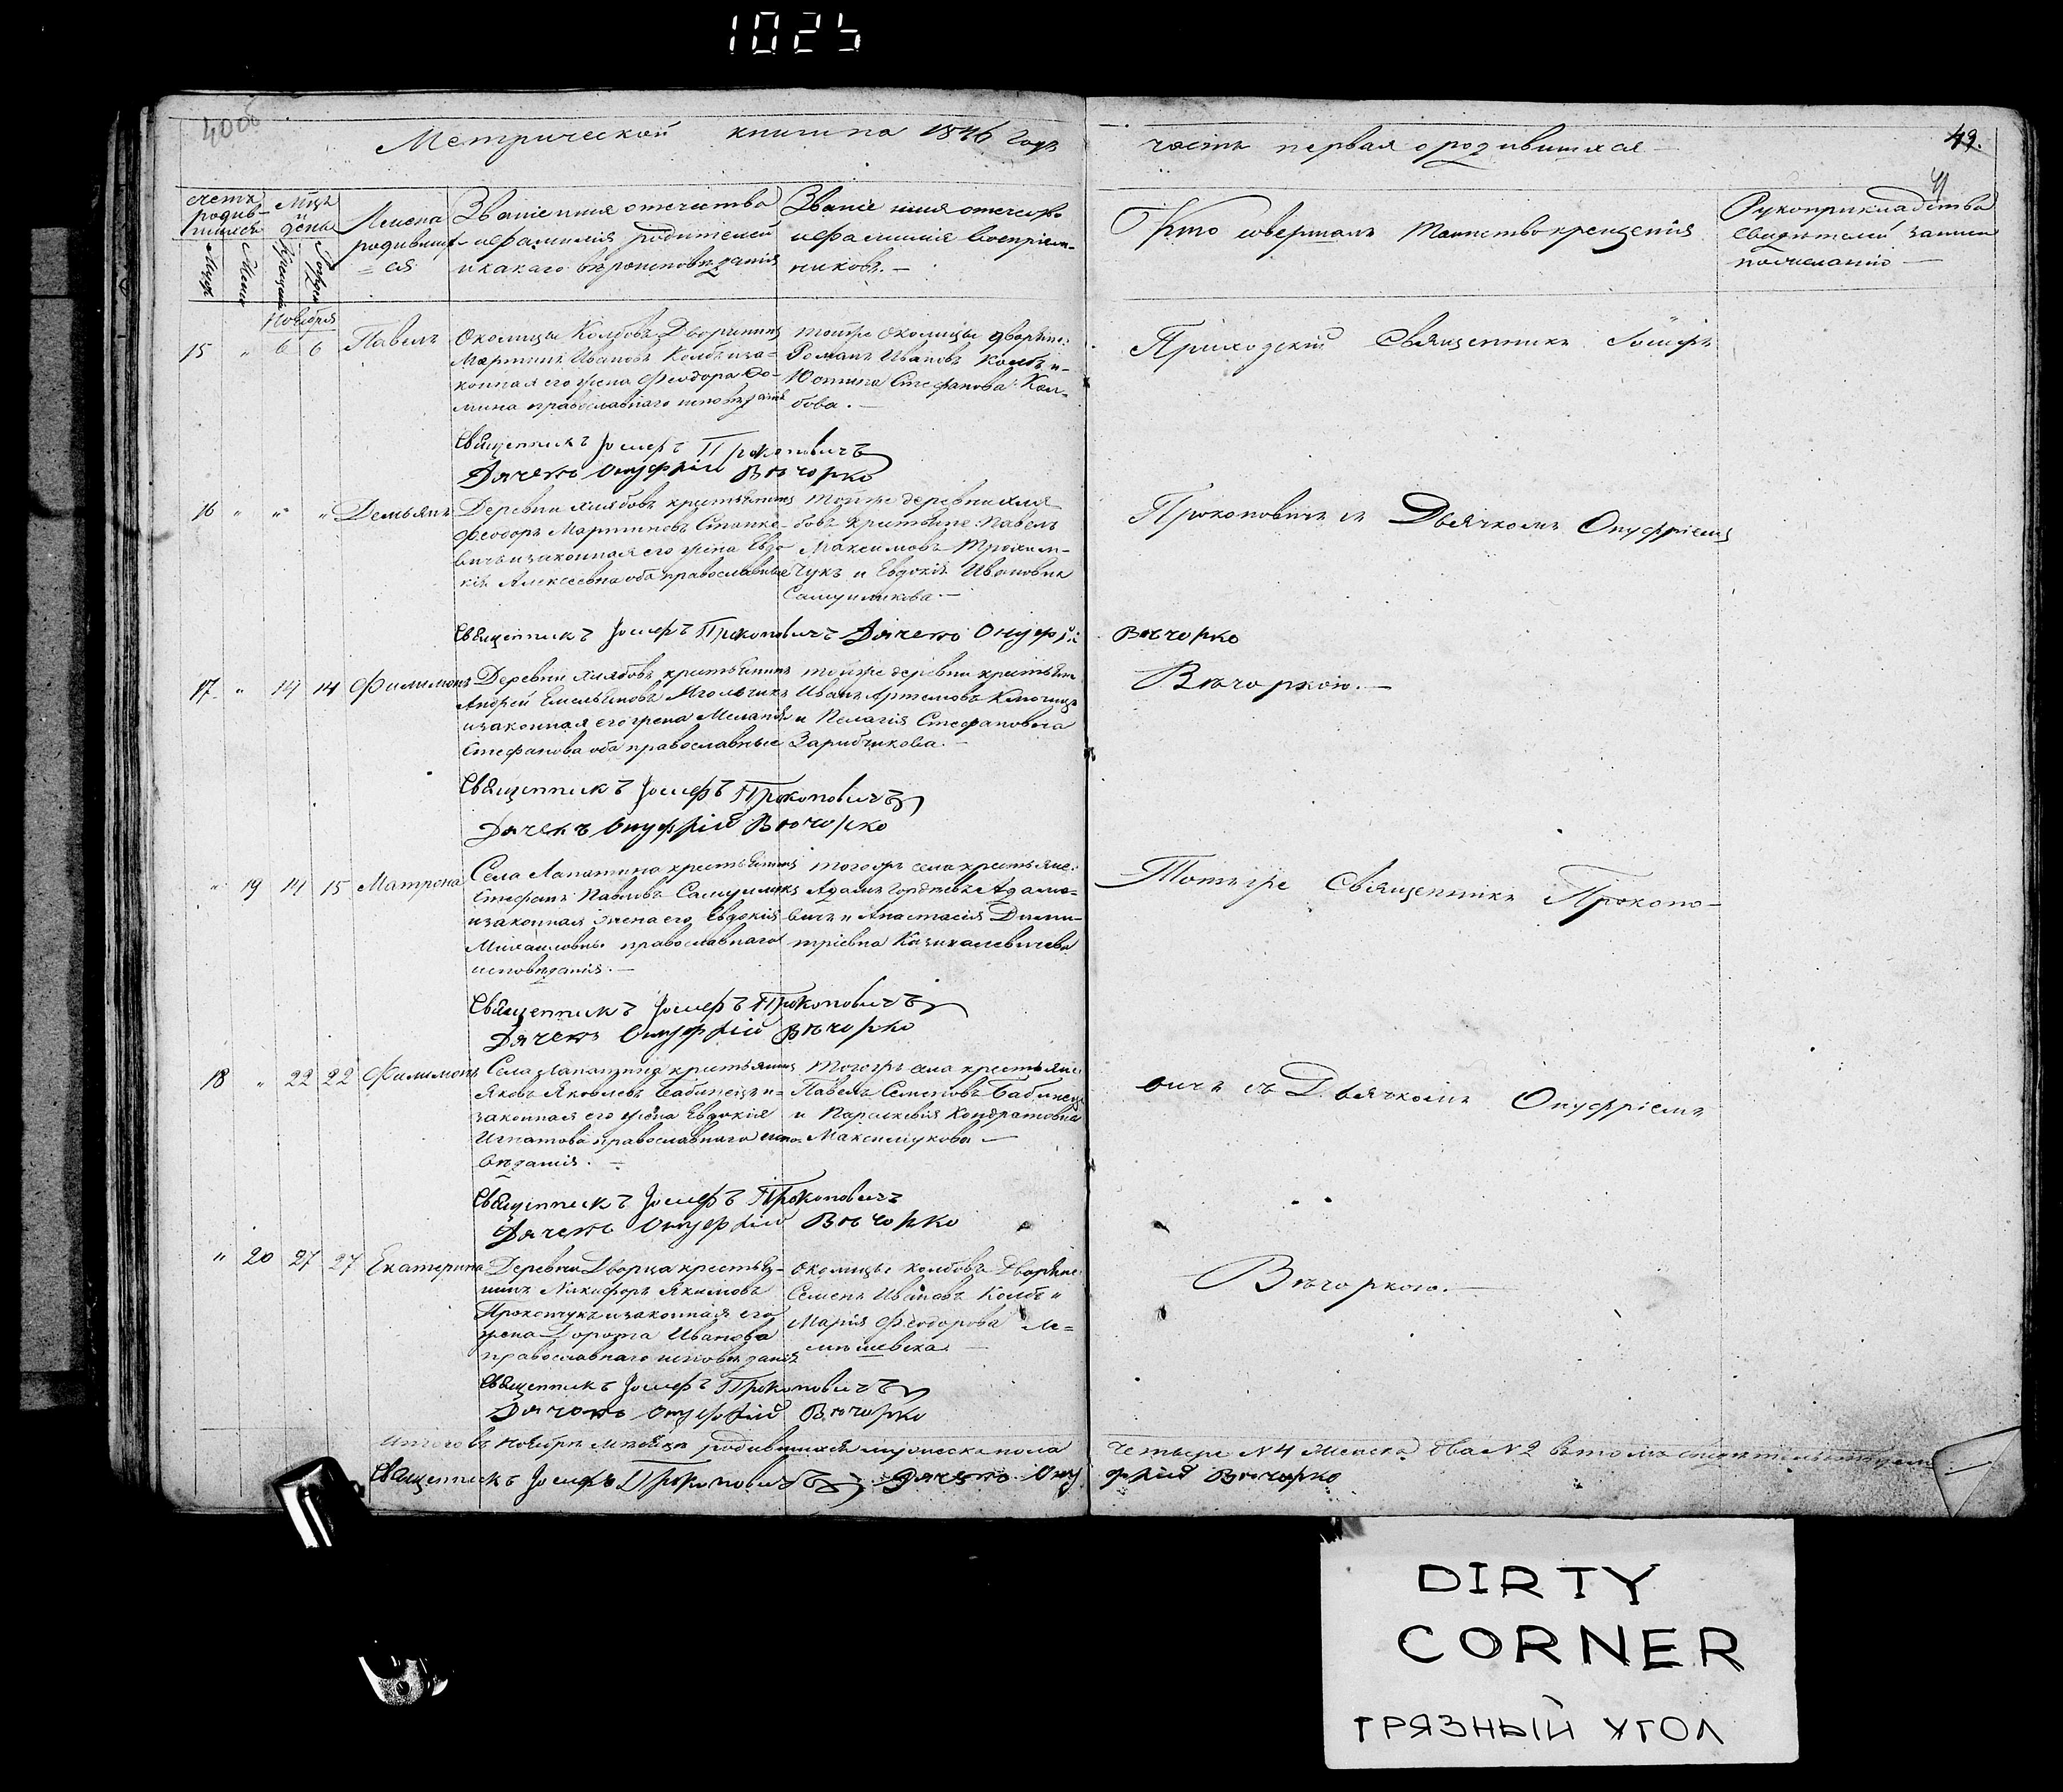 1025
40об
Метрической книги на 1846 годъ часть первая о родившихся
49.
41
счетъ родив-шихся
Мцъ и день
Имена родивших-ся
Званіе имя отечество и фамилія родителей и какаго вѣроисповѣданія
Званіе имя отечество и фамилія воспріем-никовъ.
Кто совершалъ Таинство крещенія
Рукоприкладство свидетелей записи по желанію
Ноября
15 " 6 6 Павелъ
Околицы Колбовъ Дворянинъ
Мартинъ Ивановъ Колбъ и за-
конная его жена Феодора Фо-
мина православнаго исповѣданія
тойже околицы дворяне:
Романъ Ивановъ Колбъ и
Юстина Стефанова Кол-
бова.
Приходскій Священникъ Іосифъ
Священникъ Іосифъ Прокоповичъ
Дячекъ Онуфрій Вѣчорко
16 " " " Демьянъ
Деревни Хлябовъ крестьянинъ
Феодоръ Мартиновъ Станке-
вичъ и законная его жена Евдо-
кія Алексѣевна оба православные
тойже деревни Хля-
бовъ крестьяне: Павелъ
Максимовъ Трохим-
чукъ и Евдокія Ивановна
Самуиликова.
Прокоповичъ съ Дьячкомъ Онуфріемъ
Священникъ Іосифъ Прокоповичъ Дячекъ Онуфрій Вѣчорко
17 " 14 14 Филимонъ
Деревни Хлябовъ крестьянинъ
Андрей Емельяновъ
и законная его жена Меланія
Стефанова оба православные
тойже деревни крестьяне
Иванъ Артемовъ
и Пелагія Стефановна
Вѣчоркою.
Священникъ Іосифъ Прокоповичъ
Дячекъ Онуфрій Вѣчорко
" 19 14 15 Матрона
Села Лапатина крестьянинъ
Стефанъ Павловъ Самуиликъ
и законная жена его Евдокія
Михаиловна православнаго
исповѣданія.
тогожъ села крестьяне:
Адамъ Гордѣевъ Адамо-
вичъ и Анастасія Дими-
тріевна
Тотъже Священникъ Прокопо-
Священникъ Іосифъ Прокоповичъ
Дячекъ Онуфрій Вѣчорко
18 " 22 22 Филимонъ
Села Лапатина крестьянинъ
Яковъ Яковлевъ Бабинецъ и
законная его жена Евдокія
Игнатова православнаго испо-
вѣданія.
тогожъ села крестьяне
Павелъ Семеновъ Бабинецъ
и Параскевія Кондратовна
Максимукова
вичъ съ Дьячкомъ Онуфріемъ
Священникъ Іосифъ Прокоповичъ
Дячекъ Онуфрій Вѣчорко
" 20 27 27 Екатерина
Деревни Дворца крестья-
нинъ Никифоръ Якимовъ
и законная его
жена Дорота Иванова
православнаго исповѣданія
околицы колбовъ Дворяне:
Семенъ Ивановъ Колбъ и
Марія Феодорова
Вѣчоркою.
Священникъ Іосифъ Прокоповичъ
Дячекъ Онуфрій Вѣчорко
Итого въ Ноябрѣ месяцѣ родившихся мужеска пола четыре N 4 женска два N 2 въ томъ свидѣтельствуемъ
Священникъ Іосифъ Прокоповичъ Дячекъ Онуфрій Вѣчорко
DIRTY
CORNER
ГРЯЗНЫЙ УГОЛ